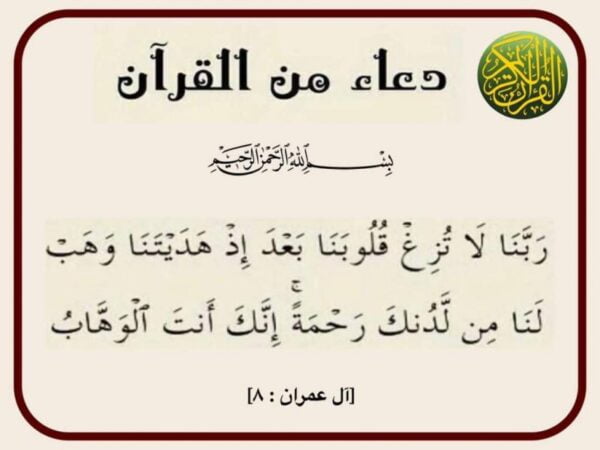 دعاء من القرآن
القرآن الكريم
بِسْمِ اللَّهِ الرَّحْمَٰنِ الرَّحِيمِ
رَبَّنَا لَا تُزِغْ قُلُوبَنَا بَعْدَ إِذْ هَدَيْتَنَا وَهَبْ
لَنَا مِن لَّدُنكَ رَحْمَةً ۚ إِنَّكَ أَنتَ ٱلْوَهَّابُ
[آل عمران : ٨]